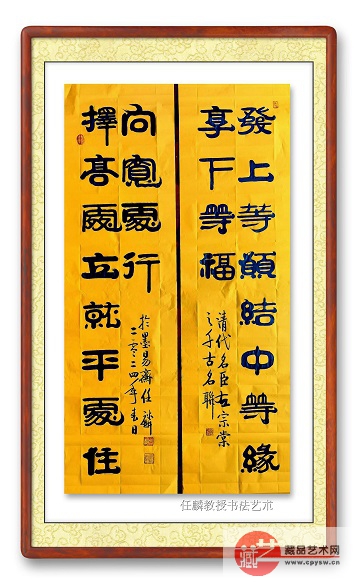 發上等願結中等緣
享下等福
清代名臣左宗棠
之千古名聯
擇高處立就平處住
向寬處行
於墨易齋任麟
二零二四年春日
任麟教授书法艺术
藏艺
藏品艺术网
www.cpysw.cn